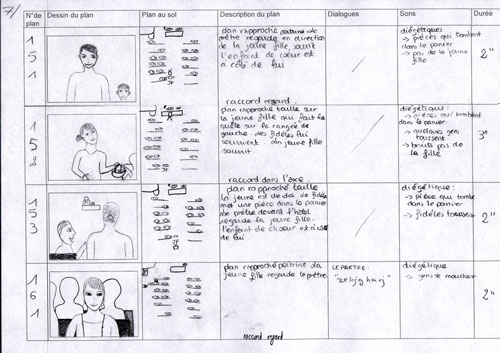 7/
N°de plan
Dessin du plan
Plan au sol
Description du plan
Dialogues
Sons
Durée
1
5
1
plan rapproché poitrine. Le
prêtre regarde en direction
de la jeune fille, sourit
l'enfant de coeur est à
côté de lui
raccord regard
diégétiques
→ pièces qui tombent
dans le panier
→ pas de la jeune
fille
2"
1
5
2
plan rapproché taille sur
la jeune fille qui fait la
quête sur la rangée de
gauche. Les fidèles lui
sourient. La jeune fille
sourit
raccord dans l'axe
diégétique:
→ pièces qui tombent
dans le panier
→ quelques gens
toussent
→ bruits pas de
la fille
3"
1
5
3
plan rapproché taille
la jeune est de dos. Le fidèle
met une pièce dans le panier
Le prêtre devant l'hôtel
regarde la jeune fille.
l'enfant de choeur est à côté
de lui
diégétique:
→ pièce qui tombe
dans le panier
→ fidèles toussent
2"
1
6
1
plan rapproché poitrine. La
jeune fille regarde le prêtre.
raccord regard
LE PRETRE:
diégétique
→ gens se mouchent
2"